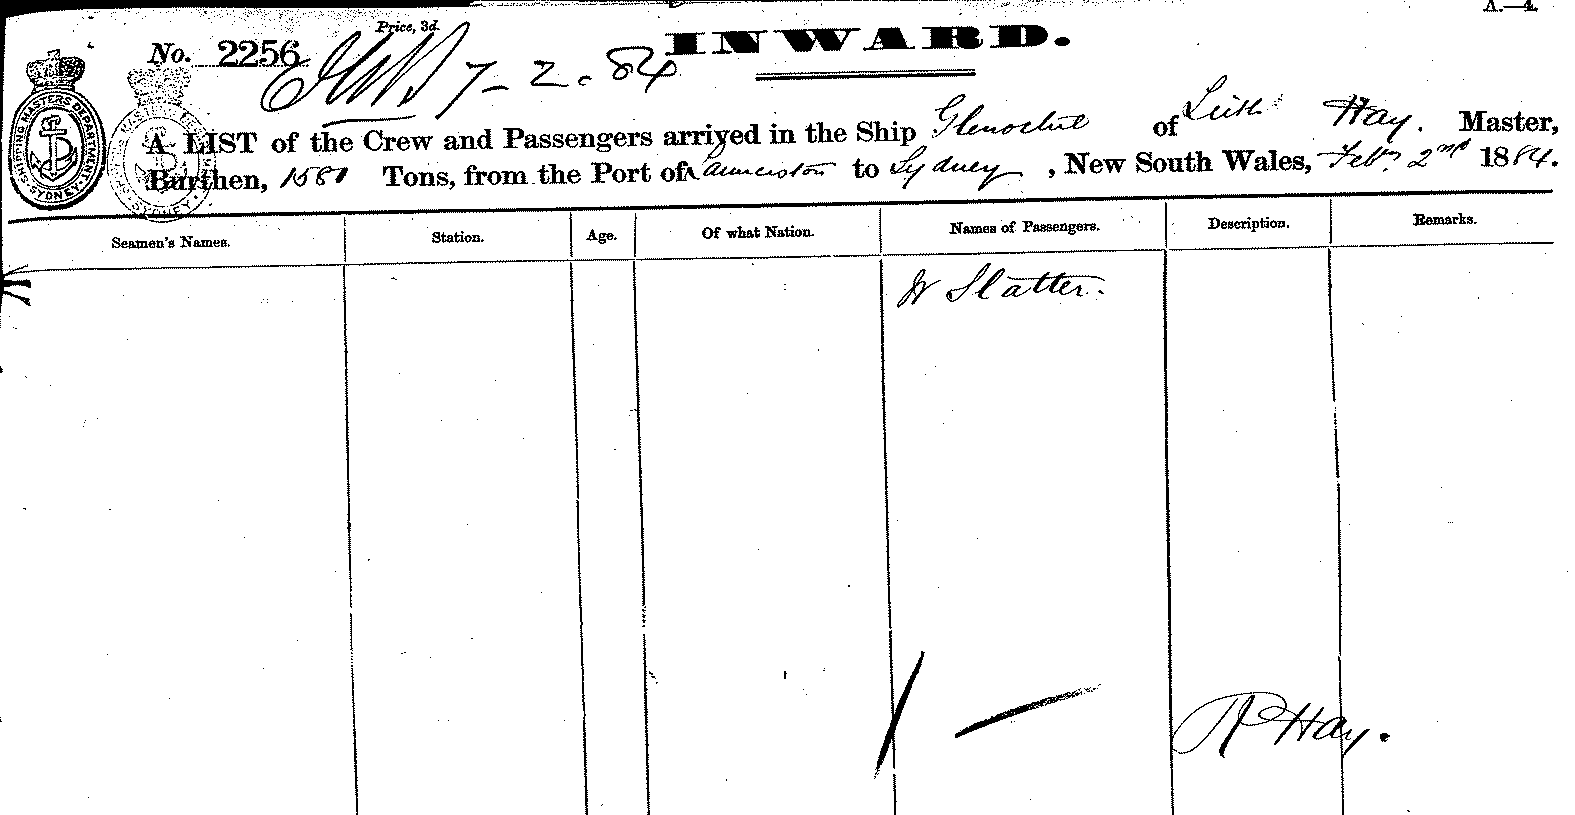 A.—4.
Price, 3d.
No. 2256
7-2.84
INWARD.
SHIPPING MASTERS DEPARTMENT. SYDNEY.
A LIST of the Crew and Passengers arrived in the Ship of Leith Hay. Master,
Burthen, 1581 Tons, from the Port of Launceston to Sydney, New South Wales, Feby 2nd 1884.
Seamen's Names. Station. Age. Of what Nation. Names of Passengers. Description. Remarks.
W Slatter.
1 —
R Hay.